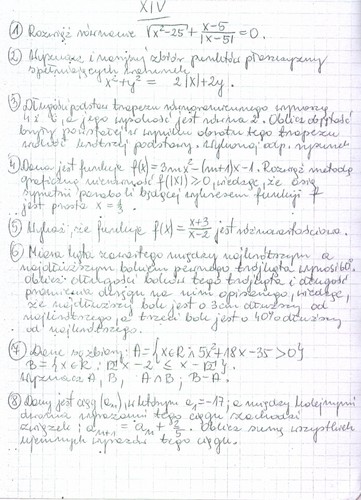 XIV
① Rozwiąż równanie √x²-25 + x-5/|x-5| = 0.
② Wyznacz i narysuj zbiór punktów płaszczyzny
spełniających warunek
x²+y² = 2|x|+2y.
③ Długości podstaw trapezu równoramiennego wynoszą
4 i 6, a jego wysokość jest równa 2. Oblicz objętość
bryły powstałej w wyniku obrotu tego trapezu
wokół krótszej podstawy. Wykonaj odp. rysunek
④ Dana jest funkcja f(x)=3mx²-(m+1)x-1. Rozwiąż metodą
graficzną nierówność f(|x|)≥0, wiedząc, że osią
symetrii paraboli będącej wykresem funkcji f
jest prosta x=
⑤ Wykaż, że funkcja f(x)= x+3/x-2 jest różnowartościowa.
⑥ Miara kąta zawartego między najkrótszym a
najdłuższym bokiem pewnego trójkąta wynosi 60°.
Oblicz długości boków tego trójkąta i długość
promienia okręgu na nim opisanego, wiedząc,
że najdłuższy bok jest o 3cm dłuższy od
najkrótszego, a trzeci bok jest o 40% dłuższy
od najkrótszego.
⑦ Dane są zbiory: A={x∈R ∧ 5x²+18x-35>0}
B={x∈R :
Wyznacz A, B, A∩B; B-A.
⑧ Dany jest ciąg (aₙ), w którym a₁=-17; a między kolejnymi
dwoma wyrazami tego ciągu zachodzi
związek: aₙ₊₁ = aₙ + 2/5. Oblicz sumę wszystkich
ujemnych wyrazów tego ciągu.